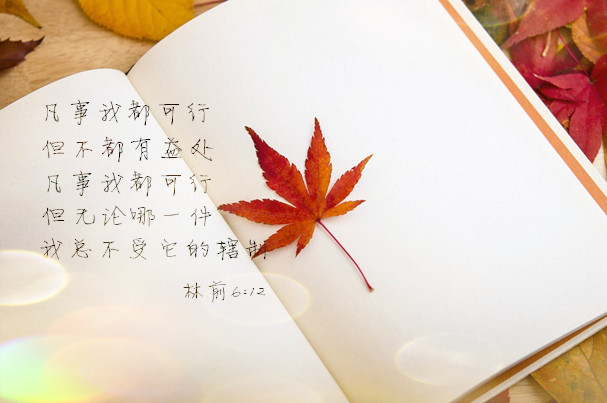 凡事我都可行
但不都有益处
凡事我都可行
但无论哪一件
我总不受它的辖制
林前6:12